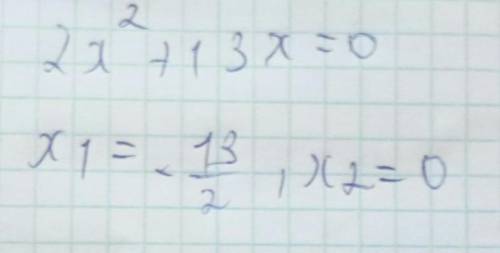 2x² + 13x = 0
x1 = -13/2, x2 = 0